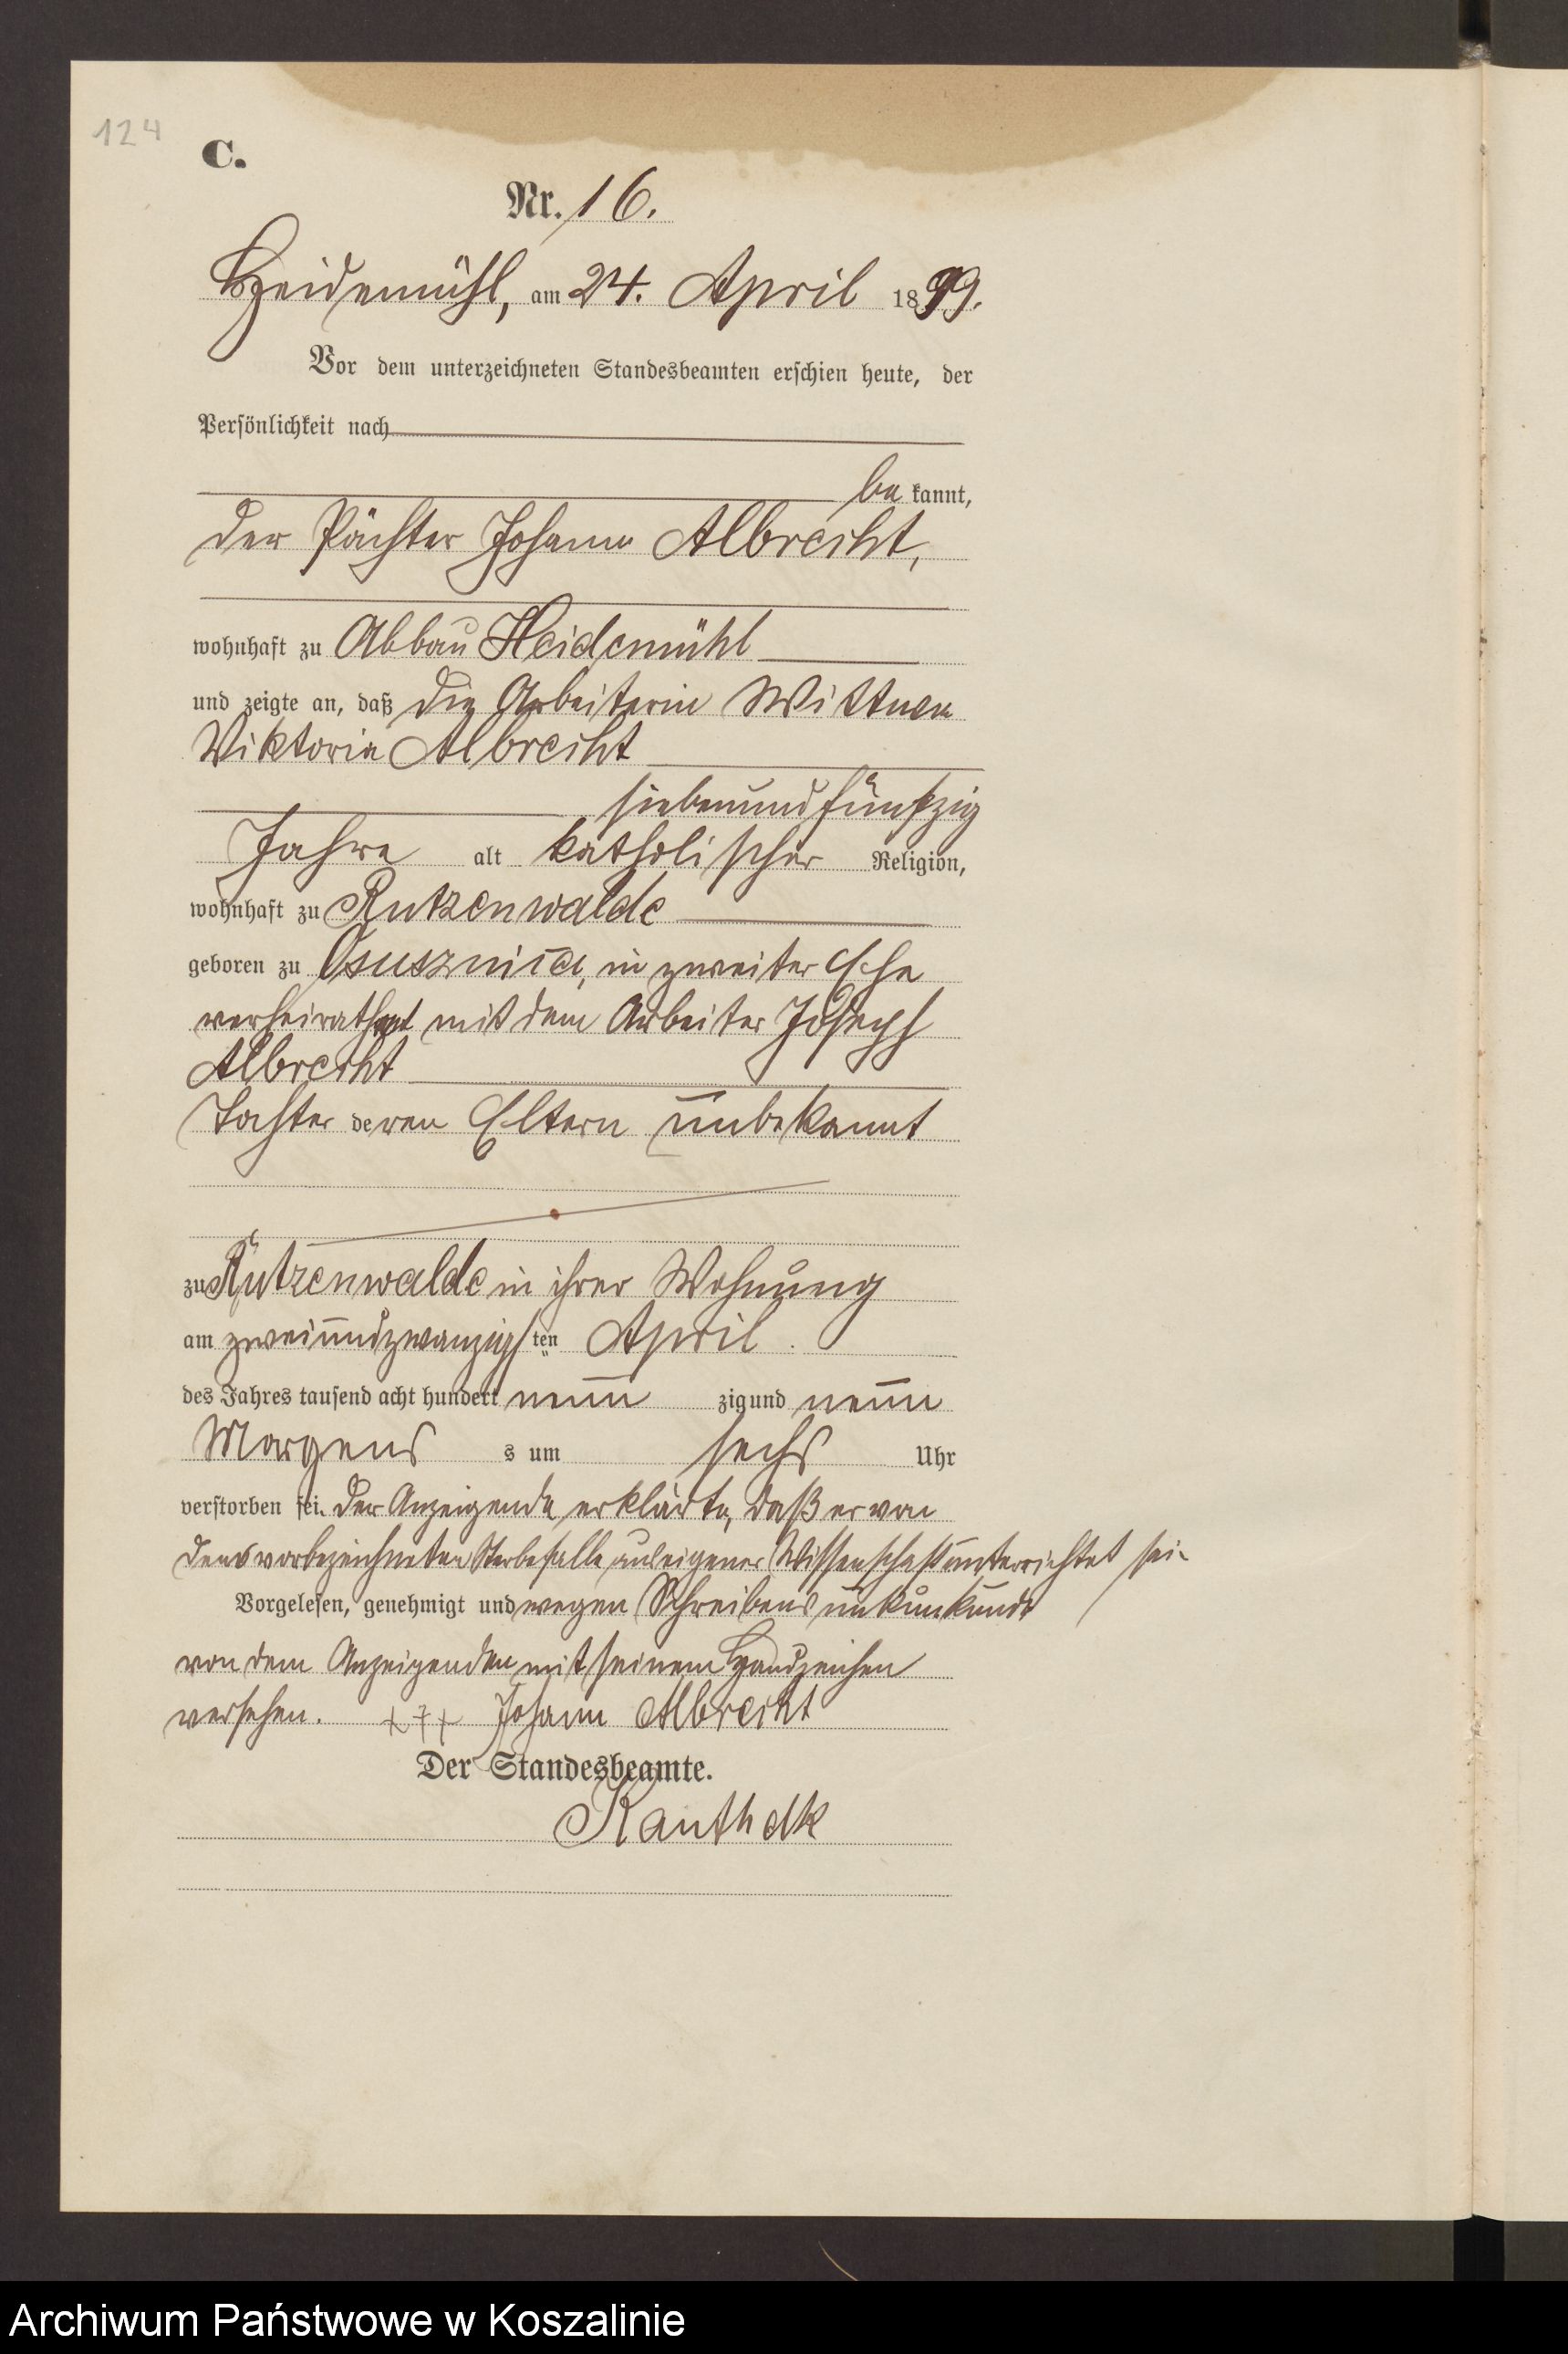 124
C.
Nr. 16.
Heidemühl, am 24. April 1899.
Vor dem unterzeichneten Standesbeamten erschien heute, der
Persönlichkeit nach
be kannt,
der Pächter Johann Albrecht,
wohnhaft zu Abbau Heidemühl
und zeigte an, daß die Arbeiterin Wittwe
Viktoria Albrecht
siebenundfünfzig
Jahre alt katholischer Religion,
wohnhaft zu Rutzenwalde
geboren zu Osusznica, in zweiter Ehe
verheirathet mit dem Arbeiter Joseph
Albrecht
Tochter deren Eltern unbekannt
zu Rutzenwalde in ihrer Wohnung
am zweiundzwanzigsten April.
des Jahres tausend acht hundert neun zig und neun
Morgens s um sechs Uhr
verstorben sei. Der Anzeigende erklärte, daß er von
dem vorbezeichneten Sterbefalle aus eigener Wissenschaft unterrichtet sei.
Vorgelesen, genehmigt und wegen Schreibens
von dem Anzeigenden mit seinem Handzeichen
versehen. +++ Johann Albrecht
Der Standesbeamte.
Archiwum Państwowe w Koszalinie